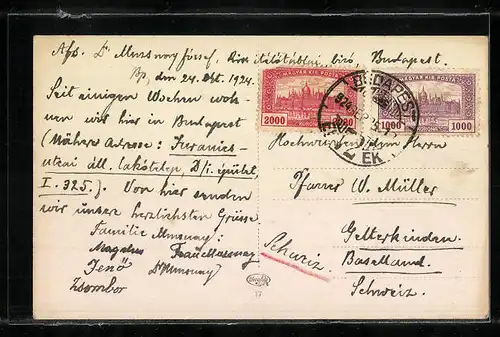 Afs. Dr Mursnay József, kir. ítélőtáblai bíró, Budapest.
Bp, den 24. Okt. 1924.
Seit einigen Wochen woh-
nen wir hier in Budapest
(Nähere Adresse:
utcai áll. lakótelep D/1. épület
I. 325.). Von hier senden
wir unsere herzlichsten Grüsse
Familie
Magdus Frau
Jenő Dr
Zsombor
MAGYAR KIR. POSTA
2000 KORONA
MAGYAR KIR. POSTA
1000 KORONA 1000
BUDAPEST
Hochwürdendem Herrn
Pfarrer W. Müller
Gelterkinden.
Baselland.
Schweiz.
Schweiz.
17